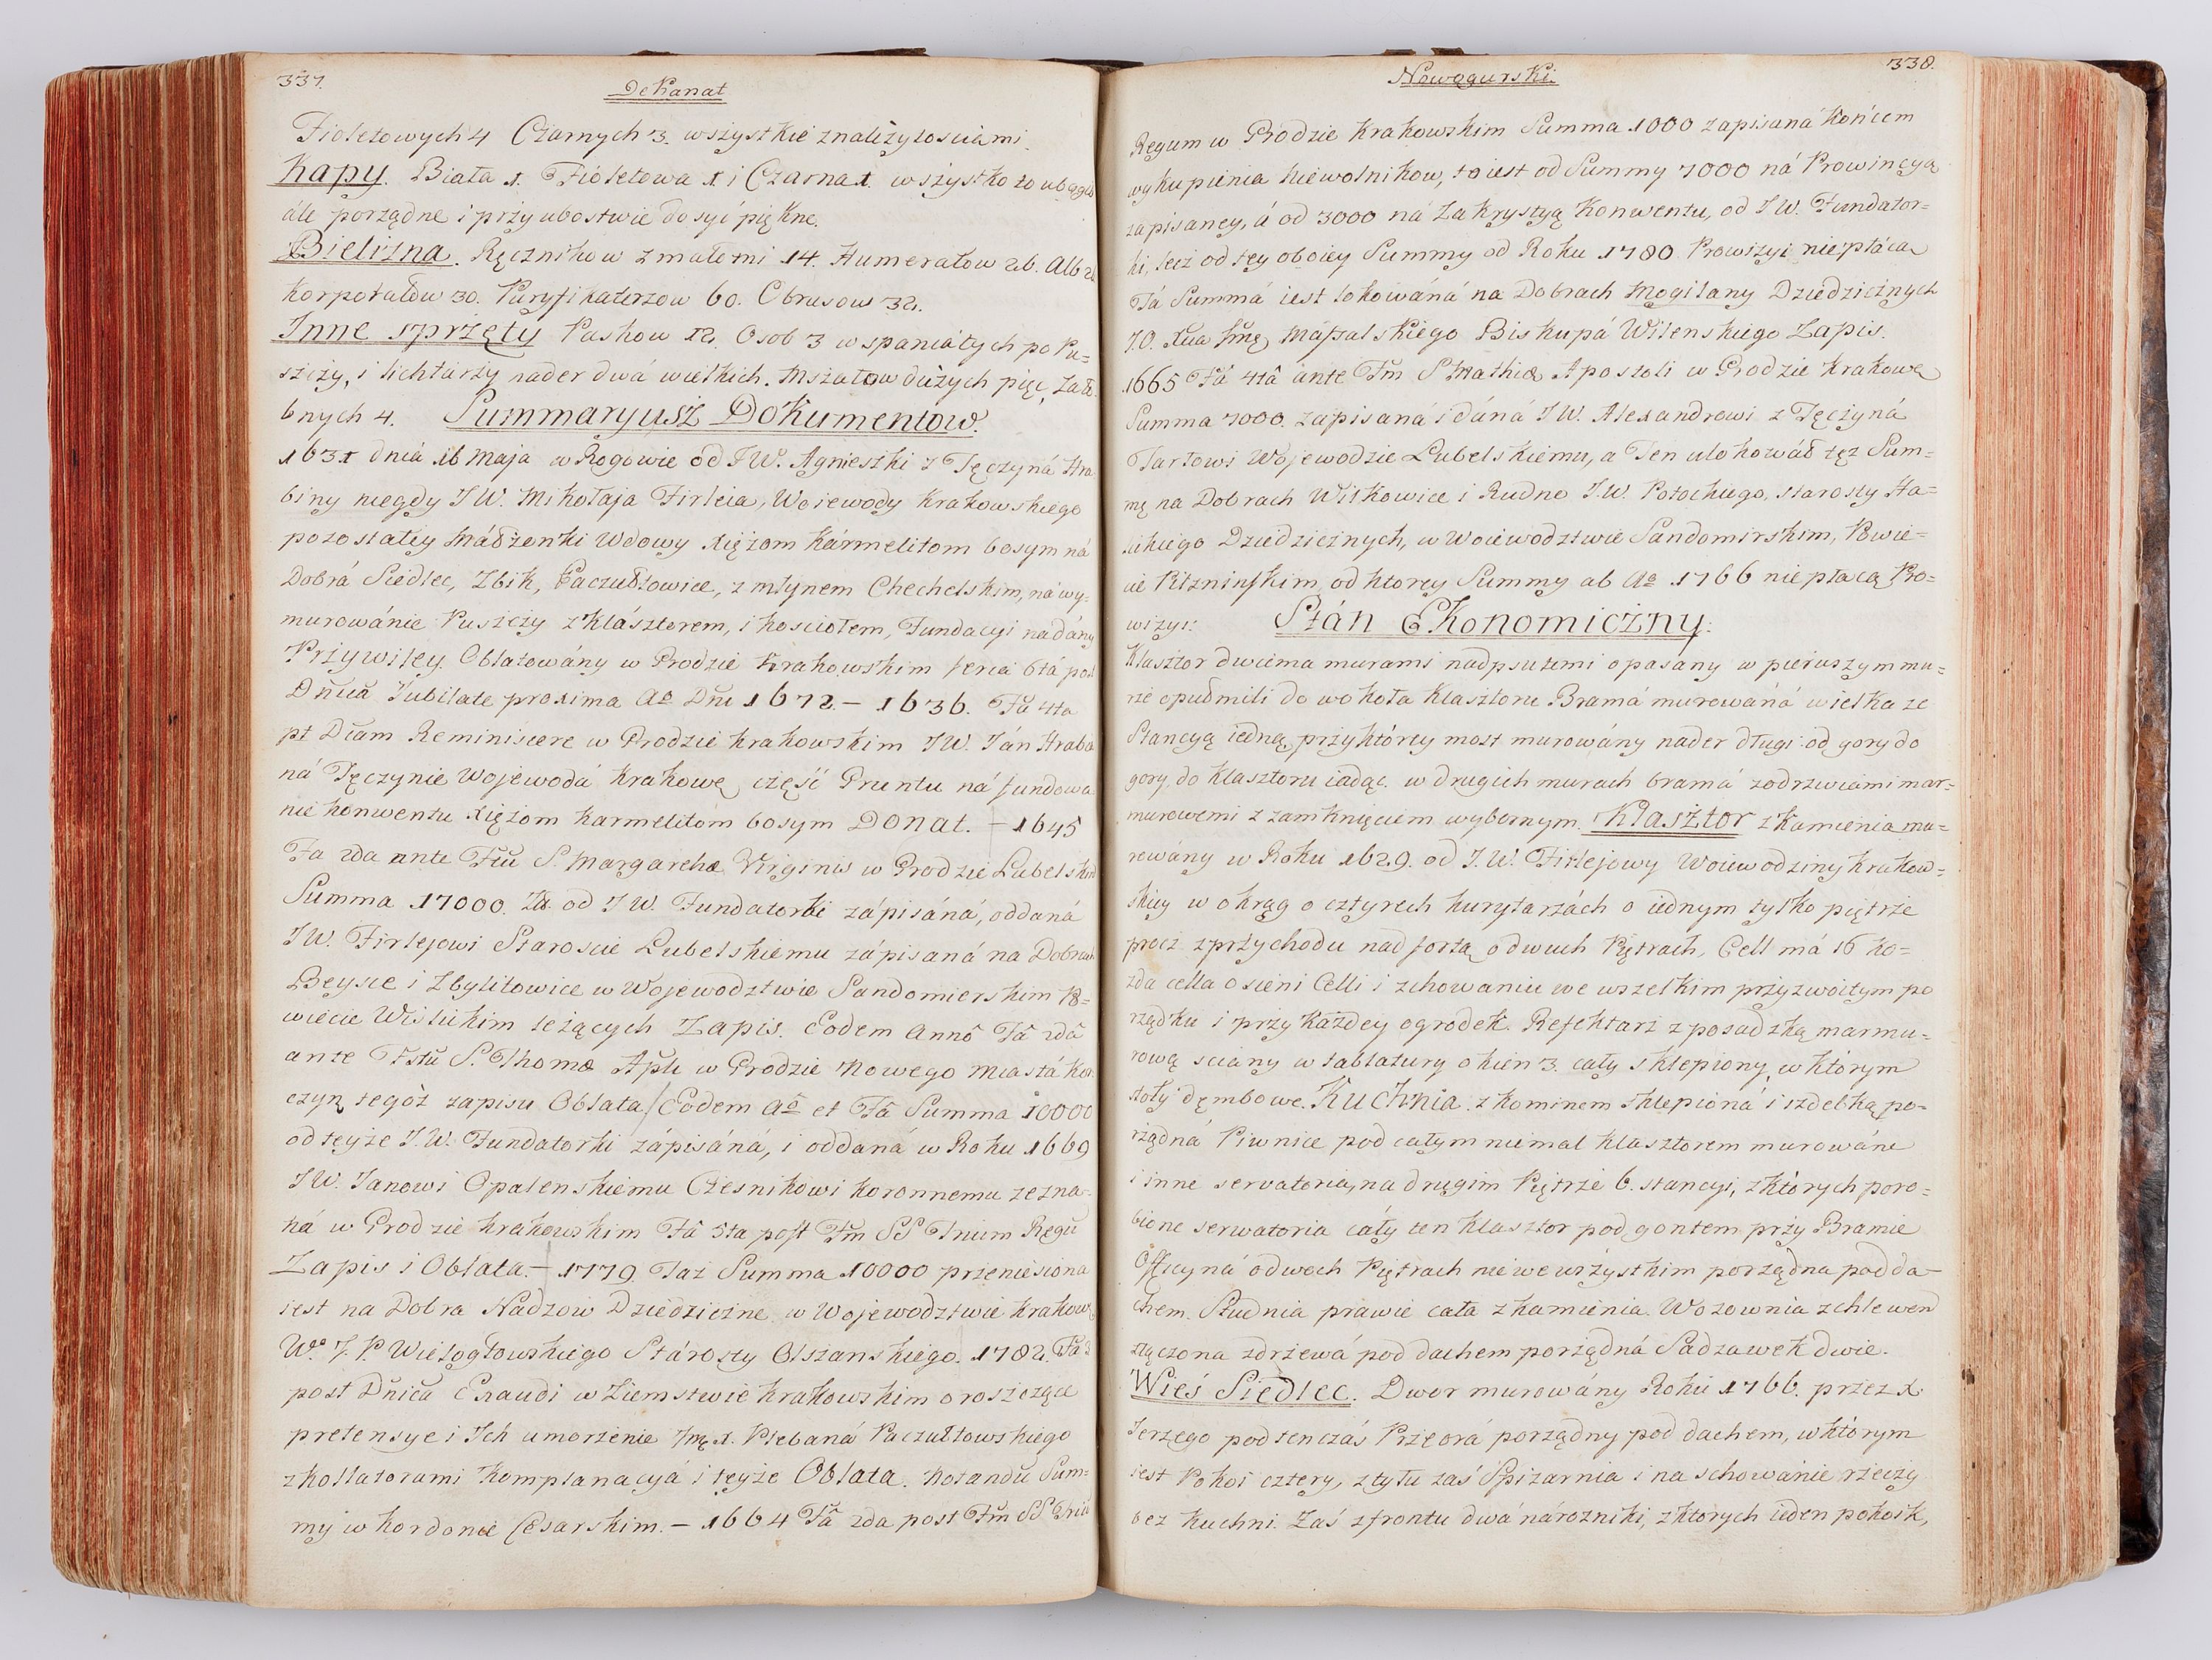 337.
Dekanat
Fioletowych 4 Czarnych 3. wszystkie znależytościami.
Kapy. Biała 1. Fioletowa 1 i Czarna 1. wszystko to ubogie
ále porządne i przy ubostwie dosyć piękne.
Bielizna. Ręcznikow z małemi 14. Humerałow 26. Alb
Korporałow 30. Puryfikaterzow 60. Obrusow 32.
Inne sprzęty Paskow 12. Osob 3 wspaniáłych po Pu=
szczy, i lichtarzy nader dwá wielkich. Mszałow dużych pięc, Żało
bnych 4. Summaryusz Dokumentow.
1631 dniá 16 Maja w Rogowie od JW. Agnieszki z Tęczyná Hra
biny niegdy JW. Mikołaja Firleia, Wojewody Krakowskiego
pozostałey Máłżonki Wdowy Xiężom Kármelitom bosym ná
Dobrá Siedlec, Żbik, Paczułtowice, z młynem Chechelskim, ná wy=
murowánie Puszczy z Klásztorem, i kosciołem, Fundacyi nadány
Przywiley. Oblatowány w Grodzie Krakowskim feria 6tá post
Dn̄icā Jubilate proxima Ao Dn̄i 1672. – 1636. Fā 4ta
pt Dīam Reminiscere w Grodzie Krakowskim JW. Ján Hraba
ná Tęczynie Wojewodá Krakows część Gruntu ná fundowa
nie konwentu Xiężom Karmelitom bosym Donat. – 1645
Fa 2da ante Ftū S. Margarethæ Virginis w Grodzie Lubelskim
Summa 17000. Zł. od JW. Fundatorki zápisáná, oddaná
JW. Firlejowi Staroscie Lubelskiemu zápisaná na Dobrach
Beysce i Zbylitowice w Wojewodztwie Sandomierskim Po=
wiecie Wislickim leżących Zapis. Eodem Annô Fā 2dā
ante Fstū S. Thomæ Apli w Grodzie Nowego Miastá Kor
czyn tegoż zapisu Oblata / Eodem Ao et Fâ Summa 10000
od teyże J.W. Fundatorki zápisáná, i oddaná w Roku 1669
JW. Janowi Opalenskiemu Czesnikowi koronnemu zezna=
ná w Grodzie krakowskim Fâ 5ta post Fm̄ SS Trium Regū
Zapis i Oblata. – 1779. Taż Summa 10000 przeniesiona
iest na Dobra Nadzow Dziedziczne w Wojewodztwie krakow
Wo J. P. Wielogłowskiego Stárosty Olszanskiego. 1782. Fâ 3
post Dn̄icā Exaudi w Ziemstwie krakowskim o roszczące
pretensye i Ich umorzenie Jmę X. Plebaná Paczułtowskiego
z kollatorami komplanacyá i teyże Oblata. Notandū Sum=
my w kordonie Cesarskim. – 1664 Fâ 2da post Fm̄ SS Triū
Nowogurski.
338.
Regum w Grodzie Krakowskim Summa 1000 zapisaná końcem
wykupienia niewolnikow, to iest od Summy 7000 ná Prowincyą
zapisaney, á od 3000 ná Zakrystyą Konwentu, od JW. Fundator=
ki, lecz od tey oboiey Summy od Roku 1780 Prowizyi niepłácą
Tá Summá iest lokowáná na Dobrach Mogilany Dziedzicznych
J.O. Xcia Jmę Massalskiego Biskupá Wilenskiego Zapis.
1665 Fâ 4tâ ante Fm̄ S Mathiæ Apostoli w Grodzie Krakows
Summa 7000. zapisaná i dáná JW. Alexandrowi z Tęczyná
Tarłowi Wojewodzie Lubelskiemu, a Ten ulokowáł tęż Sum=
mę na Dobrach Witkowice i Rudno J.W. Potockiego, starosty Ha=
lickiego Dziedzicznych, w Woiewodztwie Sandomirskim, Powie=
cie Pilzninskim od ktorey Summy ab Ao 1766 niepłacą Pro=
wizyi. Stán Ekonomiczny.
Klasztor dwiema murami nadpsutemi opasany w pierwszym mu=
rze opułmili do wokoła Klasztoru Bramá murowáná wielka ze
Stancyą iedną, przy którey most murowány nader długi od gory do
gory, do Klasztoru iadąc. w drugich murach bramá zodrzwiami mar=
murowemi z zamknięciem wybornym. Klasztor z kamienia mu=
rowány w Roku 1629. od J.W. Firlejowy Woiewodziny Krakow=
skiey w okrąg o cztyrech kurytarzách o iednym tylko piętrze
procz z przychodu nad fortą o dwuch Piętrach, Cell má 16 ko=
żda cella o sieni Celli i zchowaniu we wszelkim przyzwoitym po
rządku i przy każdey ogrodek. Refektarz z posadzką marmu=
rową sciany w tablatury okien 3. cały sklepiony, w którym
stoły dęmbowe. Kuchnia z kominem sklepioná i izdebką po=
rządná Piwnice pod całym niemal klasztorem murowáne
i inne servatoria, na drugim Piętrze 6. stancyi, z których poro=
bione serwatoria cáły ten klasztor pod gontem przy Bramie
Officyná o dwoch Piętrach nie we wszystkim porządna pod da=
chem. Studnia prawie cała z kamienia. Wozownia z chlewem
złączona z drzewá pod dachem porządná Sadzawek dwie.
Wieś Siedlec. Dwor murowány Roku 1766. przez X.
Jerzego podtenczás Przeorá porządny pod dachem, w którym
iest Pokoi cztery, z tyłu zaś Spiżarnia i na schowánie rzeczy
bez kuchni. Zaś z frontu dwá národzniki, z ktorych ieden pokoik,